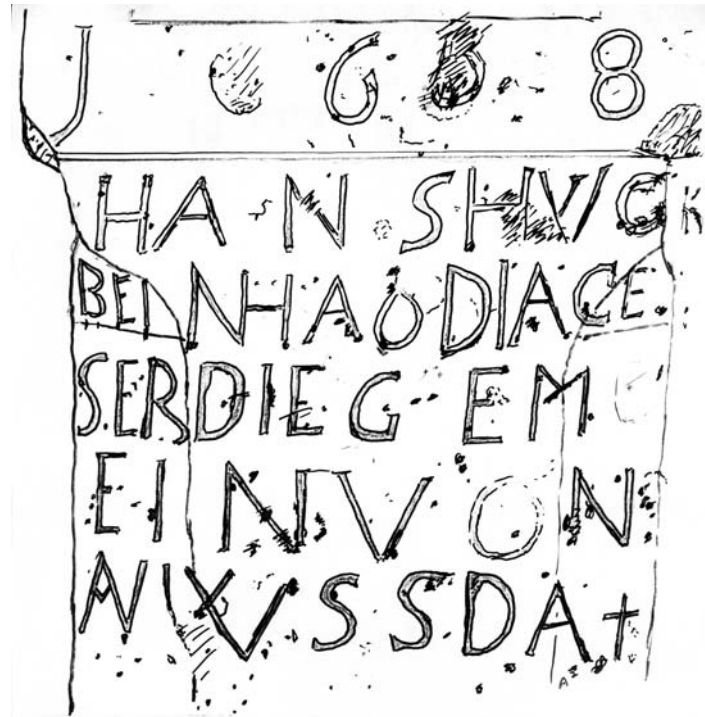 J 6 6 8
HANSHVC
BEINHAODIACE
SERDIEGEM
EINVON
NIVSSDA†